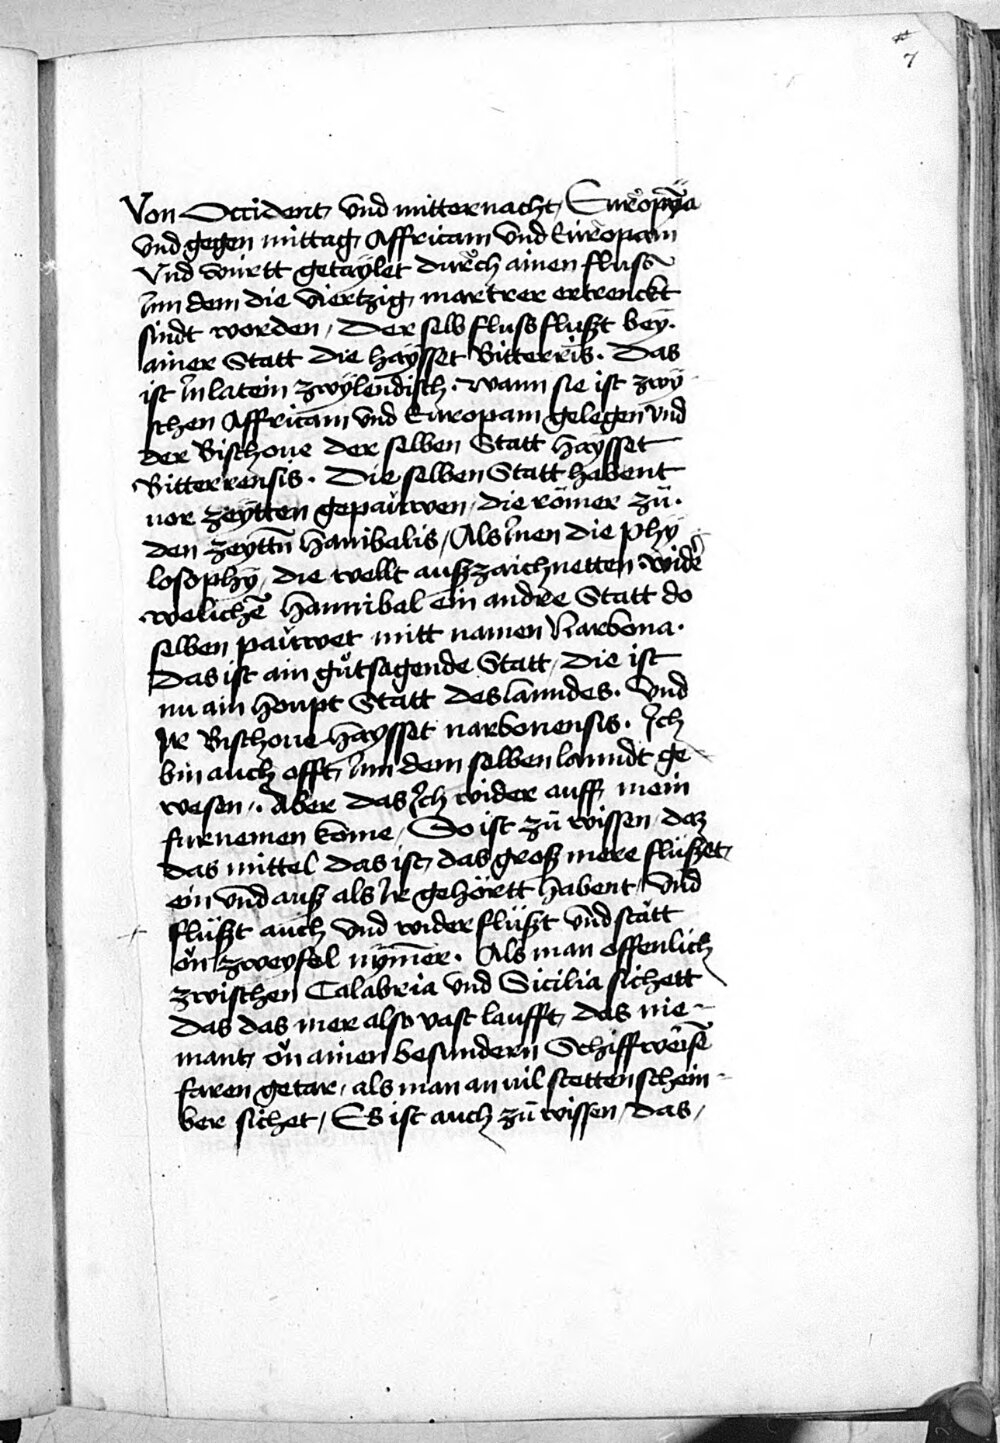 7
Von Occident, vnd mitternacht, Europya
vnd gegen mittag, Affricam vnd Europam
Vnd württ getaylet durch ainen fluss
Inn dem die viertzig martrer ertrenckt
sindt worden, Der selb fluss flußt bey.
ainer Statt die haysset Bitterris. Das
ist In latein zwylendisch. wann sie ist zwy
schen Affricam vnd Europam gelegen vnd
der Bischoue der selben Statt haysset
Bitterrensis. Die selben Statt habent
uor zeytten gepauwen, die römer zů.
den zeyttn̄ Hanibalis, Als Inen die phy
losophy, die wellt außzaichnetten. wider
welichē Hannibal ein andre Statt do
selben pauwet mitt namen Narbona.
Das ist ain gůtsagende Statt, die ist
nu ain houpt Statt des lanndes. Vnd
Ir Bischoue haysset narbonensis. Ich
bin auch offt, Inn dem selben lanndt ge
wesen. Aber das Ich wider auff mein
furnemen kōme, So ist zů wissen daz
das mittel das ist, das groß mere flüßet,
ein vnd auß als Ir gehörtt habent, vnd
flüßt auch vnd wider flüßt vnd statt
on zweyfel nym̄er. Als man offenlich
zwischen Calabria vnd Sicilia sichett
das das mer also vast laufft, das nie-
mant, on ainen besundern Schiffweisē
faren getar, als man an uil stetten schein-
ber sichet, Es ist auch zů wissen, das,